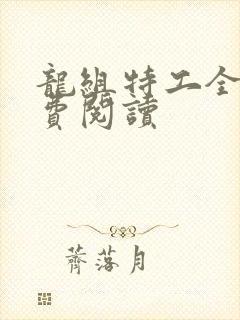 龍組特工全
費閱讀
薺落月